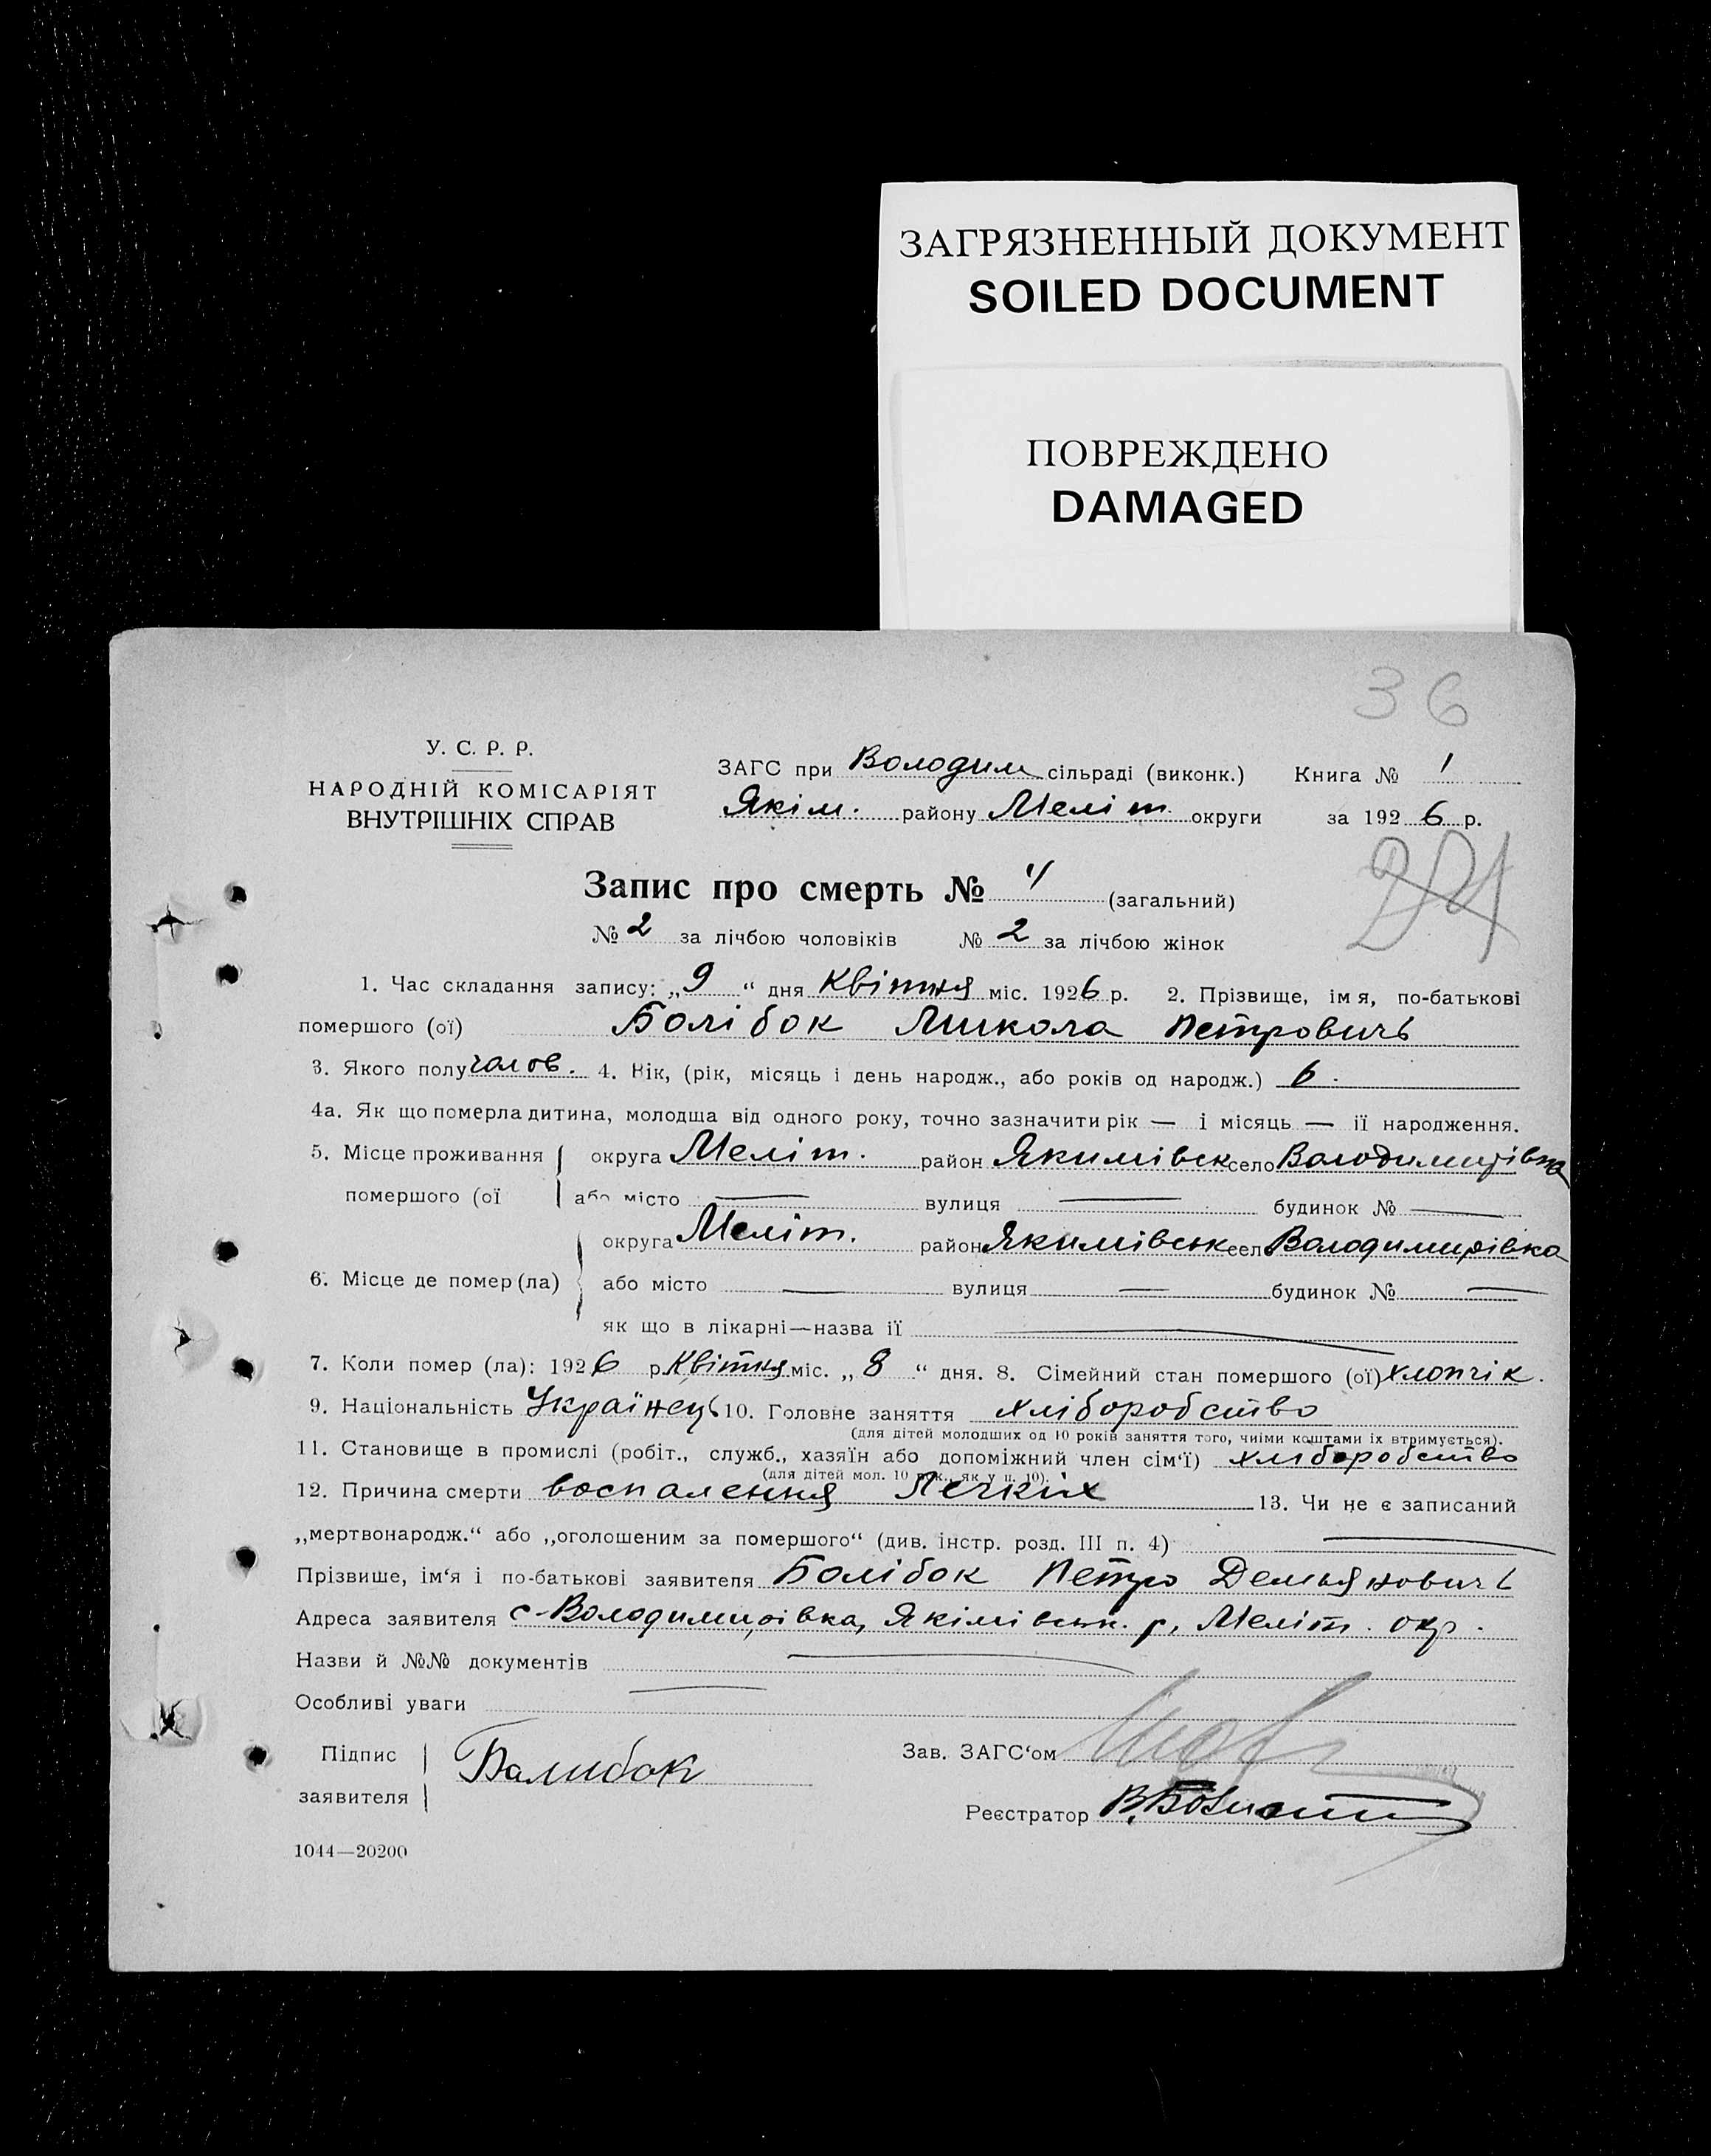 ЗАГРЯЗНЕННЫЙ ДОКУМЕНТ
SOILED DOCUMENT
ПОВРЕЖДЕНО
DAMAGED
36
У. С. Р. Р.
НАРОДНІЙ КОМІСАРІЯТ
ВНУТРІШНІХ СПРАВ
ЗАГС при Володим сільраді (виконк.) Книга № 1
Якім. району Меліт. округи за 1926 р.
Запис про смерть № 4 (загальний)
№ 2 за лічбою чоловіків № 2 за лічбою жінок
1. Час складання запису: „9“ дня Квітня міс. 1926 р. 2. Прізвище, ім я, по-батькові
помершого (ої) Болібок Микола Петровичь
3. Якого полу чолов. 4. Вік, (рік, місяць і день народж., або років од народж.) 6.
4а. Як що померла дитина, молодща від одного року, точно зазначити рік — і місяць — ії народження.
5. Місце проживання округа Меліт. район Якимівск село Володимирівка
помершого (ої або місто — вулиця — будинок № —
округа Меліт. район Якимівськ сел Володимирівка
6. Місце де помер (ла) або місто — вулиця — будинок № —
як що в лікарні—назва ії —
7. Коли помер (ла): 1926 р. Квітня міс. „8“ дня. 8. Сімейний стан помершого (ої) хлопчік.
9. Національність Українець 10. Головне заняття хліборобство
(для дітей молодших од 10 років заняття того, чиїми коштами їх втримується).
11. Становище в промислі (робіт., служб., хазяїн або допоміжний член сім‘ї) хліборобство
(для дітей мол. 10 рок., як у п. 10).
12. Причина смерти воспалення Лечких 13. Чи не є записаний
„мертвонародж.“ або „оголошеним за помершого“ (див. інстр. розд. III п. 4) —
Прізвише, ім‘я і по-батькові заявителя Болібок Петро Демьяновичь
Адреса заявителя с-Володимирівка, Якімівськ. р, Меліт. окр.
Назви й №№ документів —
Особливі уваги —
Підпис заявителя Балибок
Зав. ЗАГС‘ом
Реєстратор
1044—20200